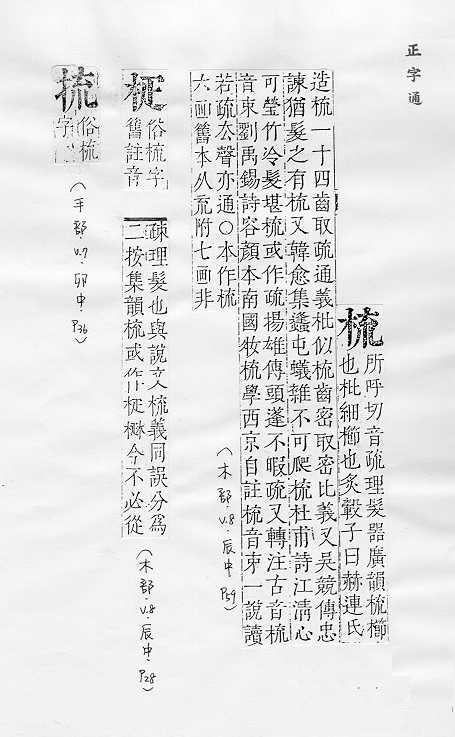 正字通
梳
所呼切音疏理髮器廣韻梳櫛
也枇細櫛也炙轂子曰赫連氏
造梳二十四齒取疏通義枇似梳齒密取密比義又吴競傳忠
諫猶髮之有梳又韓愈集蠭屯蟻雜不可爬梳杜甫詩江淸心
可瑩竹冷髮堪梳或作疏揚雄傳頭蓬不暇疏又轉注古音梳
音束劉禹錫詩容顔本南國妝梳學西京自註梳音束一說讀
若疏去聲亦通○本作梳
六画舊本从㐬附七画非
(木部.v.8.辰中.P59)
俗梳字
舊註音
疎理髮也與說文梳義同誤分爲
二按集韻梳或作 今不必從
(木部.v.8.辰中.P28)
俗梳
字
(手部.v.7.卯中.P36)